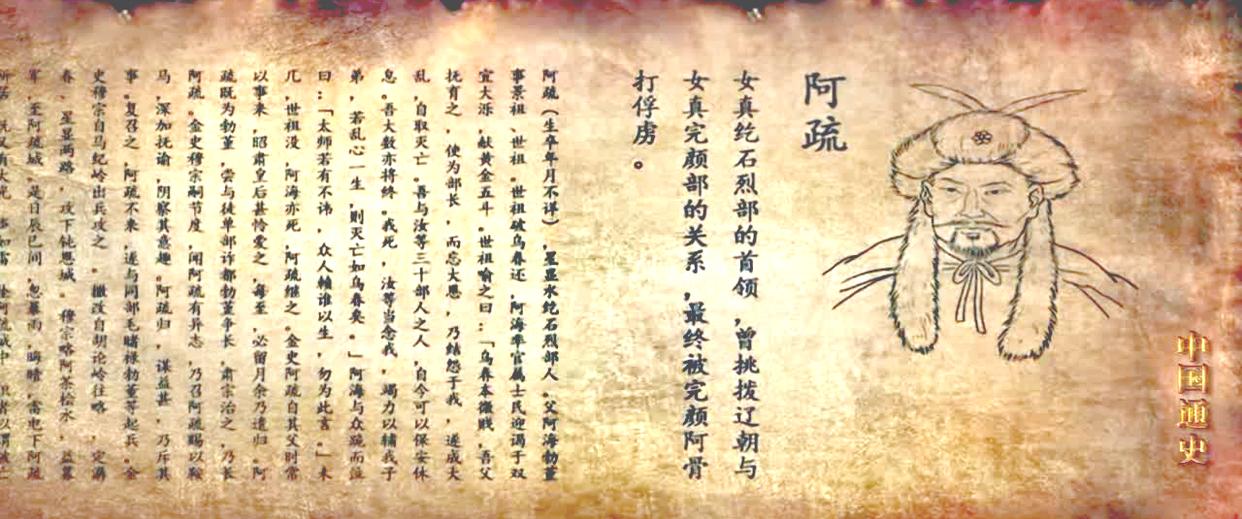 中国通史
阿疏
女真纥石烈部的首领，曾挑拨辽朝与
女真完颜部的关系，最终被完颜阿骨
打俘虏。
阿疏（生卒年月不详），星显水纥石烈部人。父阿海勃堇
事景祖、世祖。世祖破乌春还，阿海率官属士民迎谒于双
宜大泺，献黄金五斗。世祖喻之曰：“乌春本微贱，吾父
抚育之，使为部长，而忘大恩，乃结怨于我，遂成大
乱，自取灭亡。吾与汝等三十部人之人，自今可以保安休
息。吾大数亦将终。我死，汝等当念我，竭力以辅我子
弟，若乱心一生，则灭亡如乌春矣。”阿海与众跪而泣
曰：“太师若有不讳，众人赖谁以生，勿为此言。”未
几，世祖没，阿海亦死，阿疏继之。金史阿疏自其父时常
以事来，昭肃皇后甚怜爱之，每至，必留月余乃遣归。阿
疏既为勃堇，尝与徒单部诈都勃堇争长，肃宗治之，乃长
阿疏。金史穆宗嗣节度，闻阿疏有异志，乃召阿疏赐以鞍
马，深加抚谕，阴察其意趣。阿疏归，谋益甚，乃斥其
事。复召之，阿疏不来，遂与同部毛睹禄勃堇等起兵。金
史穆宗自马纪岭出兵攻之。撒改自胡论岭往略，定潺
春、星显两路，攻下钝恩城。穆宗略阿茶桧水，益募
军，至阿疏城。是日辰巳间，忽暴雨，晦曀，雷电下阿疏